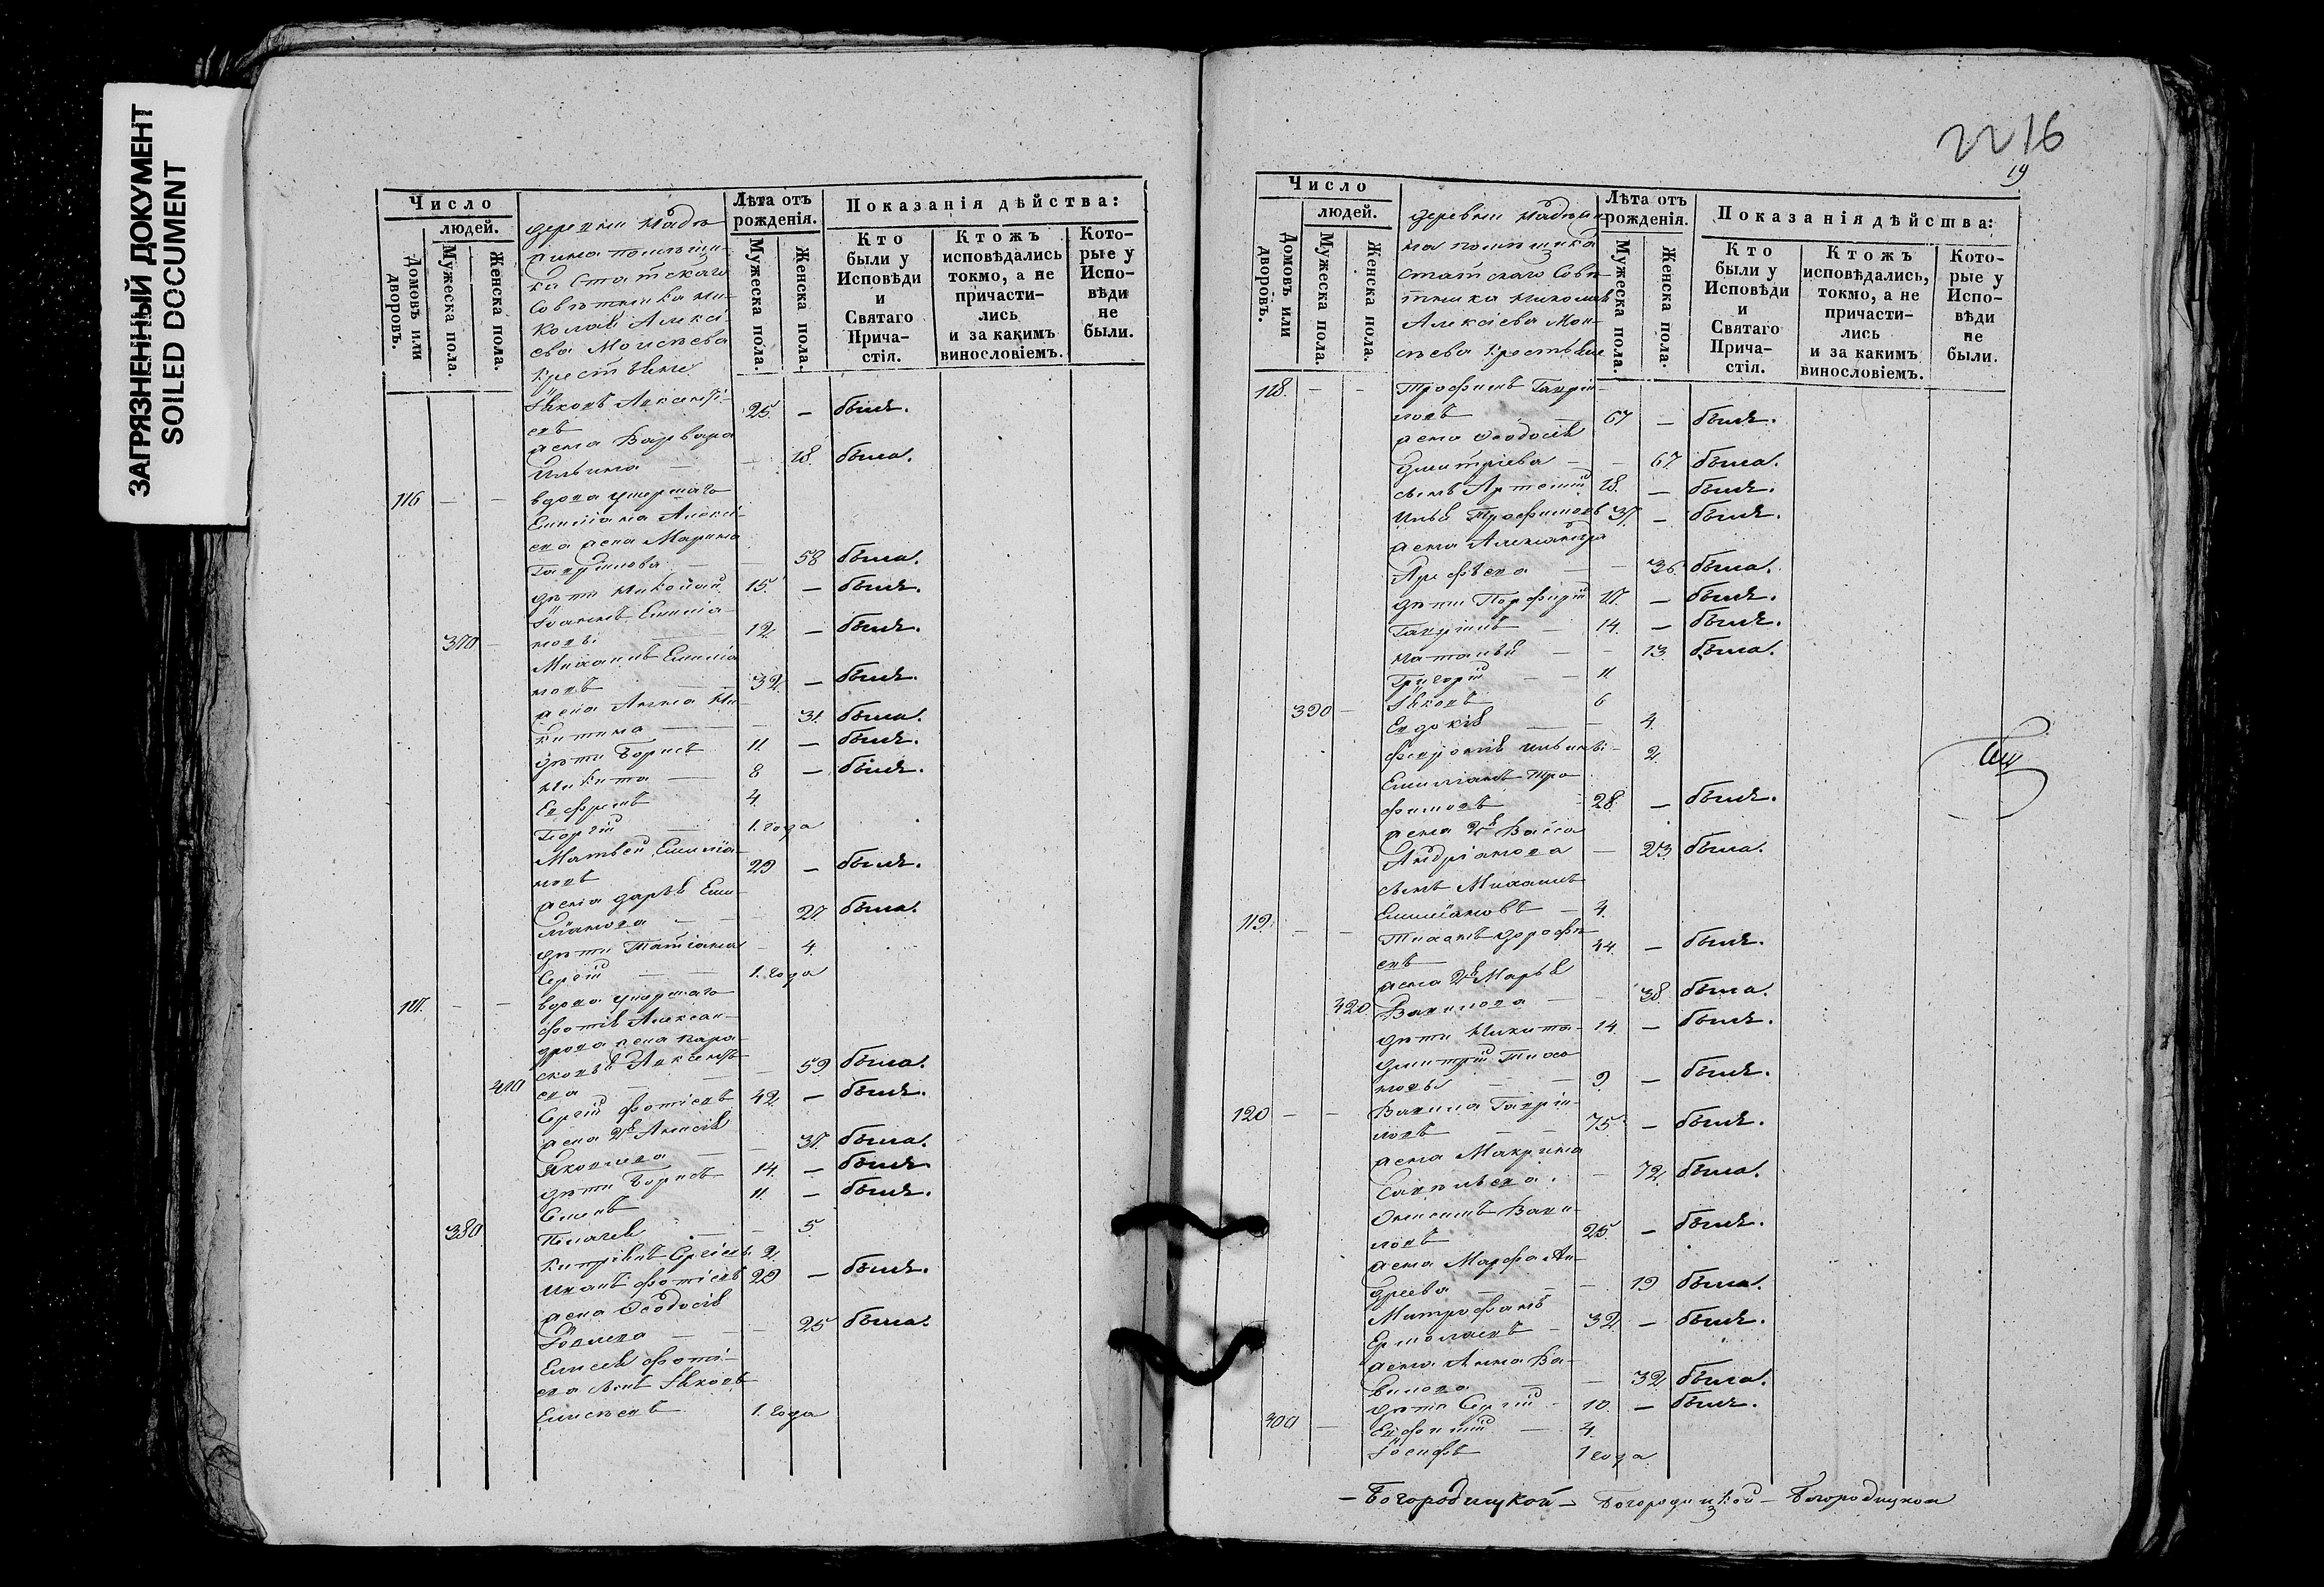 ЗАГРЯЗНЕННЫЙ ДОКУМЕНТ
SOILED DOCUMENT
Число
людей.
Домовъ или дворовъ.
Мужеска пола.
Женска пола.
деревни
помѣщи-
ка Статскаго
Совѣтника Ни-
колая Алексі-
ева Моисѣева
крестьяне
Лѣта отъ рожденія.
Мужеска пола.
Женска пола.
Показанія дѣйства:
Кто были у Исповѣди и Святаго Прича-стія.
Ктожъ исповѣдались токмо, а не причасти-лись и за какимъ винословіемъ.
Кото-рые у Испо-вѣди не были.
Іаковъ Авксентi-
евъ 25. — былъ.
жена Варвара
Ильина — — 18. была.
116 — — вдова умершаго
Емиліана Алексі-
ева жена Марина
Гаврилова — — 58 была.
дѣти Николай 15. — былъ.
Іоаннъ Емилiа-
370 — новы 12 — былъ.
Михаилъ Емилiа
новъ — 32. — былъ.
жена Анна Ни-
китина — — 31. была.
дѣти Борисъ 11. — былъ.
Никита — 8 — былъ.
Ефремъ 4.
Георгій — 1. года
Матвей Емилiа-
новъ 29 — былъ.
жена Дарья Еми-
лiанова — — 27. была.
дѣти Татiана — 4.
Сергій — — 1. года
117. — — вдова умершаго
Фотія Алексан-
дрова жена Пара-
сковья Авксентi-
410 ева — — 59 была.
Сергій Фотіевъ 42 — былъ.
жена 2я Анисія
Яковлева — — 37 была.
дѣти Борисъ 14. — былъ.
Симонъ 11. — былъ.
380 Пелагея — — 5.
Кипріянъ Сергіевъ 2.
Иванъ Фотіевъ 29 — былъ.
жена Ѳеодосія
Іовлева — — 25 была.
Елисея Фоті-
ева сынъ Іаковъ
Елисѣевъ 1. года
22 16
19
Число
людей.
Домовъ или дворовъ.
Мужеска пола.
Женска пола.
деревни
на помѣщика
статскаго Совѣ-
тника Николая
Алексіева Мои-
сѣева крестьяне
Лѣта отъ рожденія.
Мужеска пола.
Женска пола.
Показанія дѣйства:
Кто были у Исповѣди и Святаго Прича-стія.
Ктожъ исповѣдались, токмо, а не причасти-лись и за какимъ винословіемъ.
Кото-рые у Испо-вѣди не были.
118. — — Трофимъ Гаври-
ловъ 67 — былъ.
жена Ѳеодосія
Дмитріева — — 67. была.
сынъ Артемій 18. — былъ.
Илья Трофимовъ 37. — былъ.
жена Александра
Арефьева — — 36. была.
дѣти Порфирій 17. — былъ.
Гавріилъ — 14. — былъ.
Наталья — — 13. была.
Григорій — — 11
390 — Іаковъ 6
Евдокія — — 4.
Февронія Ильины — 2.
Емиліанъ Тро
фимовъ 28. — былъ.
жена 2я Васса
Андріанова — 23. была.
сынъ Михаилъ
Емиліановъ — 4.
119. — — Тихонъ Дорофѣ
евъ 44. — былъ.
жена 2я Марья
420 Вавилова — — 38. была.
дѣти Никита 14. — былъ.
Дмитрій Тихо
новы — — 9. — былъ.
120 — — Вавила Гаврi-
ловъ — — 75 — былъ.
жена Макрина
Савельева. — 72. была.
Онисимъ Вави-
ловъ 25. — былъ.
жена Марфа Ан-
дреева — — 19 была.
Митрофанъ
Ермолаевъ — 32. — былъ.
жена Анна Ва-
вилова — — 32 была.
дѣти Сергій — 10. — былъ.
400 — Евфимій — 4.
Іосифъ 1 года
— Богородицкой — Богородицкой — Богородицкой